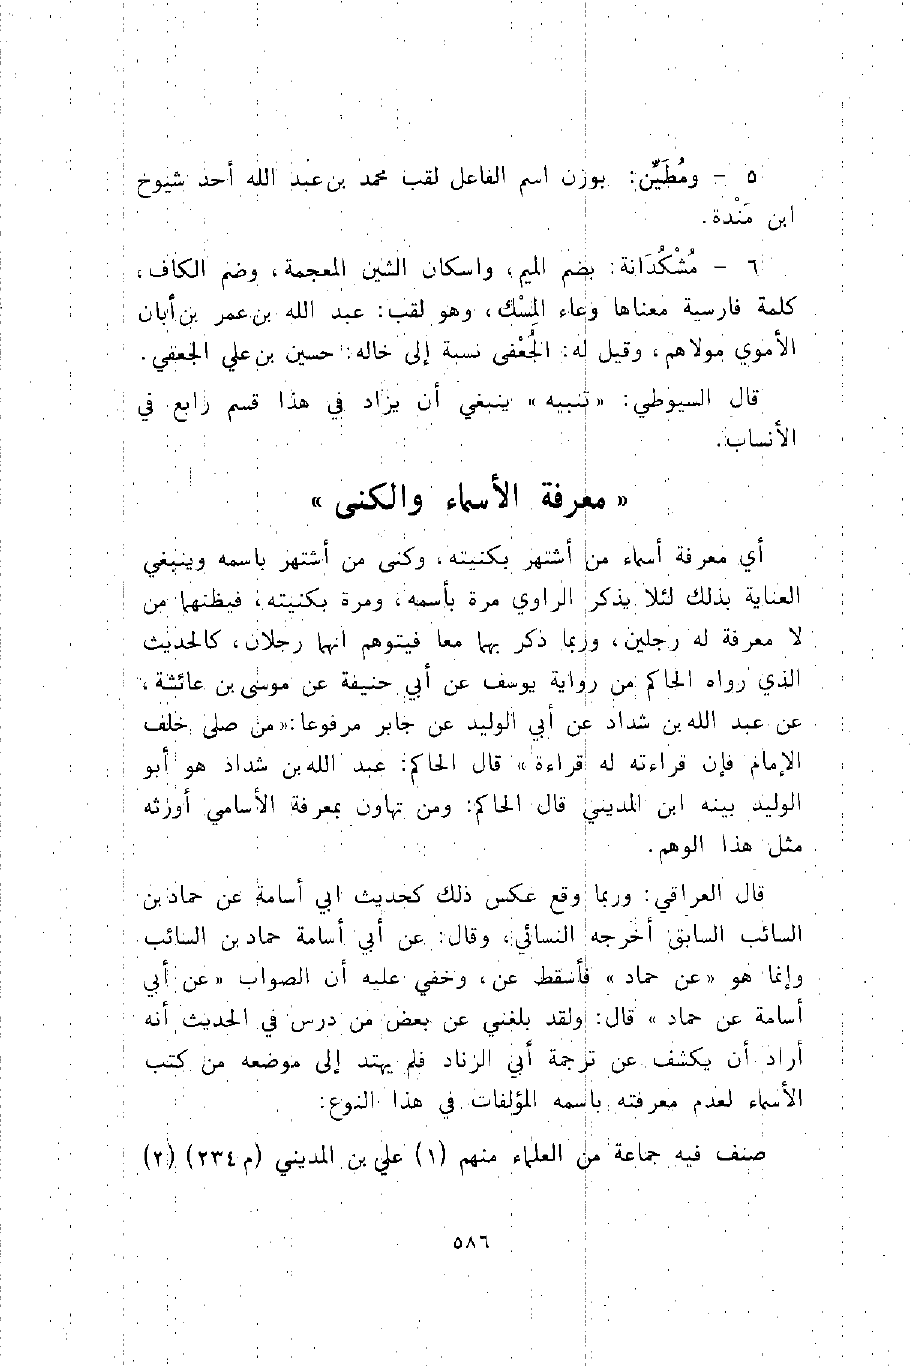 ٥ - ومُطَيِّن: بوزن اسم الفاعل لقب محمد بن عبد الله أحد شيوخ
ابن مَنْدة.
٦ - مُشْكُدَانة: بضم الميم، واسكان الشين المعجمة، وضم الكاف،
كلمة فارسية معناها وعاء المِسْك، وهو لقب: عبد الله بن عمر بن أبان
الأموي مولاهم، وقيل له: الجُعْفى نسبة إلى خاله: حسين بن علي الجعفي.
قال السيوطي: «تنبيه» ينبغي أن يزاد في هذا قسم رابع في
الأنساب.
« معرفة الأسماء والكنى »
أي معرفة أسماء من أشتهر بكنيته، وكنى من أشتهر باسمه وينبغي
العناية بذلك لئلا يذكر الراوي مرة بأسمه، ومرة بكنيته، فيظنهما من
لا معرفة له رجلين، وربما ذكر بهما معا فيتوهم انهما رجلان، كالحديث
الذي رواه الحاكم من رواية يوسف عن أبي حنيفة عن موسى بن عائشة،
عن عبد الله بن شداد عن أبي الوليد عن جابر مرفوعا: «من صلى خلف
الإمام فإن قراءته له قراءة» قال الحاكم: عبد الله بن شداد هو أبو
الوليد بينه ابن المديني قال الحاكم: ومن تهاون بمعرفة الأسامي أورثه
مثل هذا الوهم.
قال العراقي: وربما وقع عكس ذلك كحديث ابي أسامة عن حماد بن
السائب السابق أخرجه النسائي، وقال: عن أبي أسامة حماد بن السائب
وإنما هو «عن حماد» فأسقط عن، وخفي عليه أن الصواب «عن أبي
أسامة عن حماد» قال: ولقد بلغني عن بعض من درس في الحديث أنه
أراد أن يكشف عن ترجمة أبي الزناد فلم يهتد إلى موضعه من كتب
الأسماء لعدم معرفته باسمه المؤلفات في هذا النوع:
صنف فيه جماعة من العلماء منهم (١) علي بن المديني (م ٢٣٤) (٢)
٥٨٦